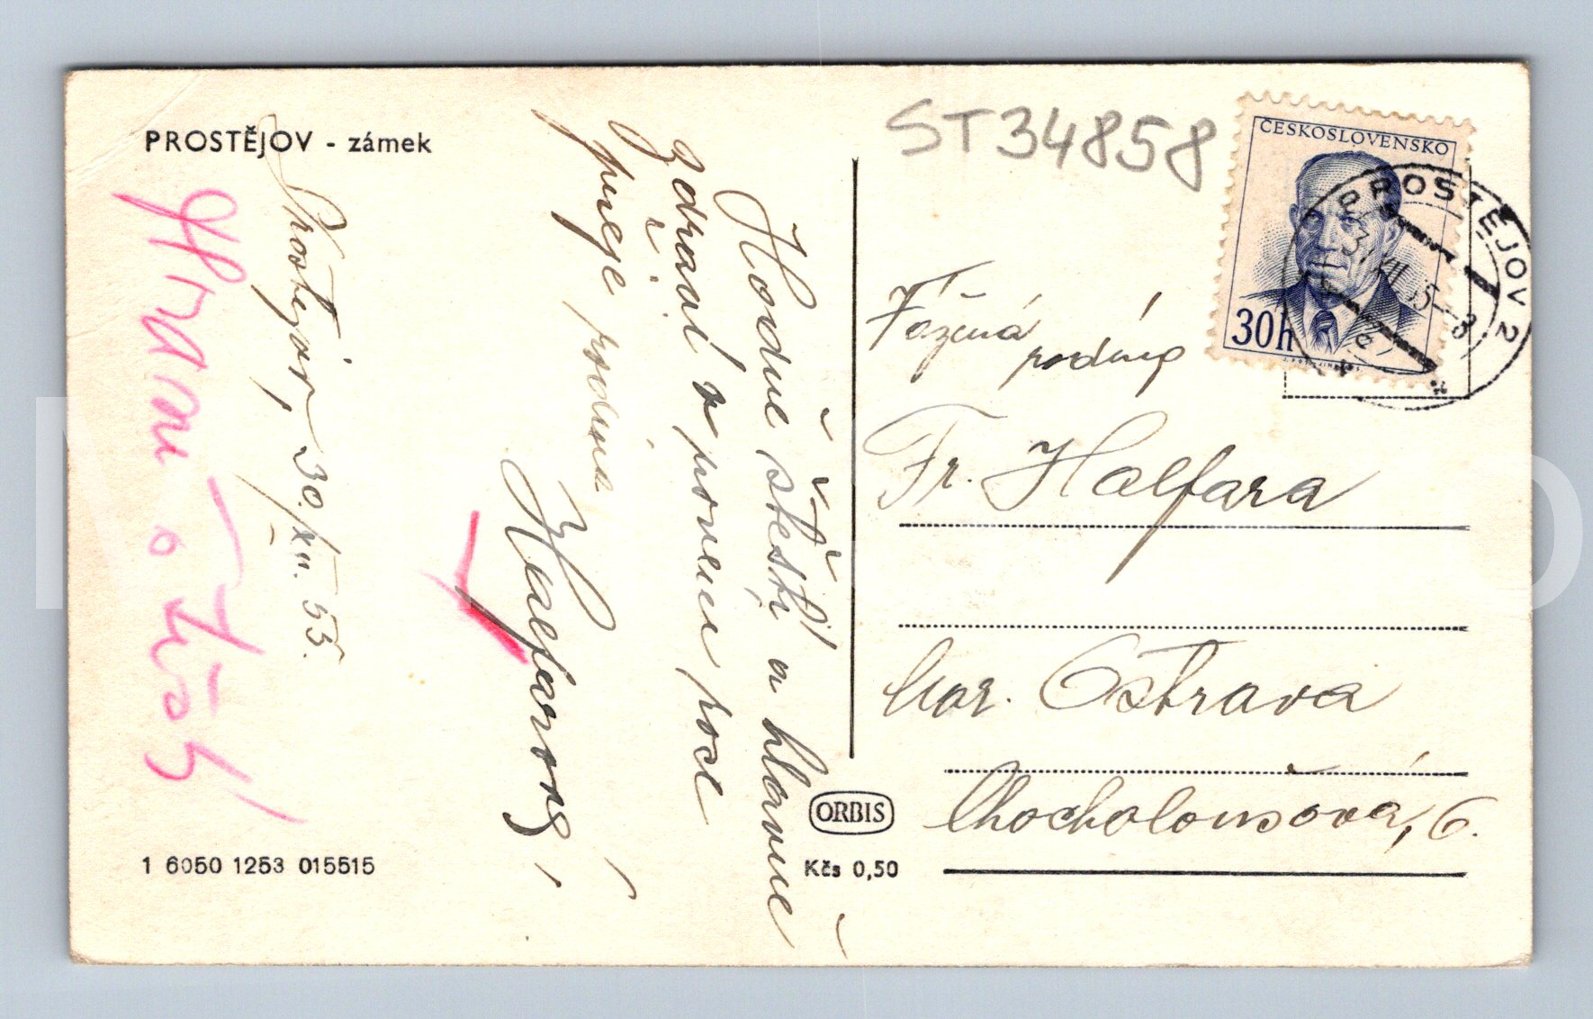 PROSTĚJOV - zámek
ST34858
ČESKOSLOVENSKO
30h
PROSTĚJOV 2
Prostějov, 30./XII. 53.
Hodně štěstí a hlavně
zdraví v novém roce
přeje rodina
Halfarova
Vážená
rodina
Fr. Halfara
Mor. Ostrava
Chocholoušova, 6.
ORBIS
Kčs 0,50
1 6050 1253 015515